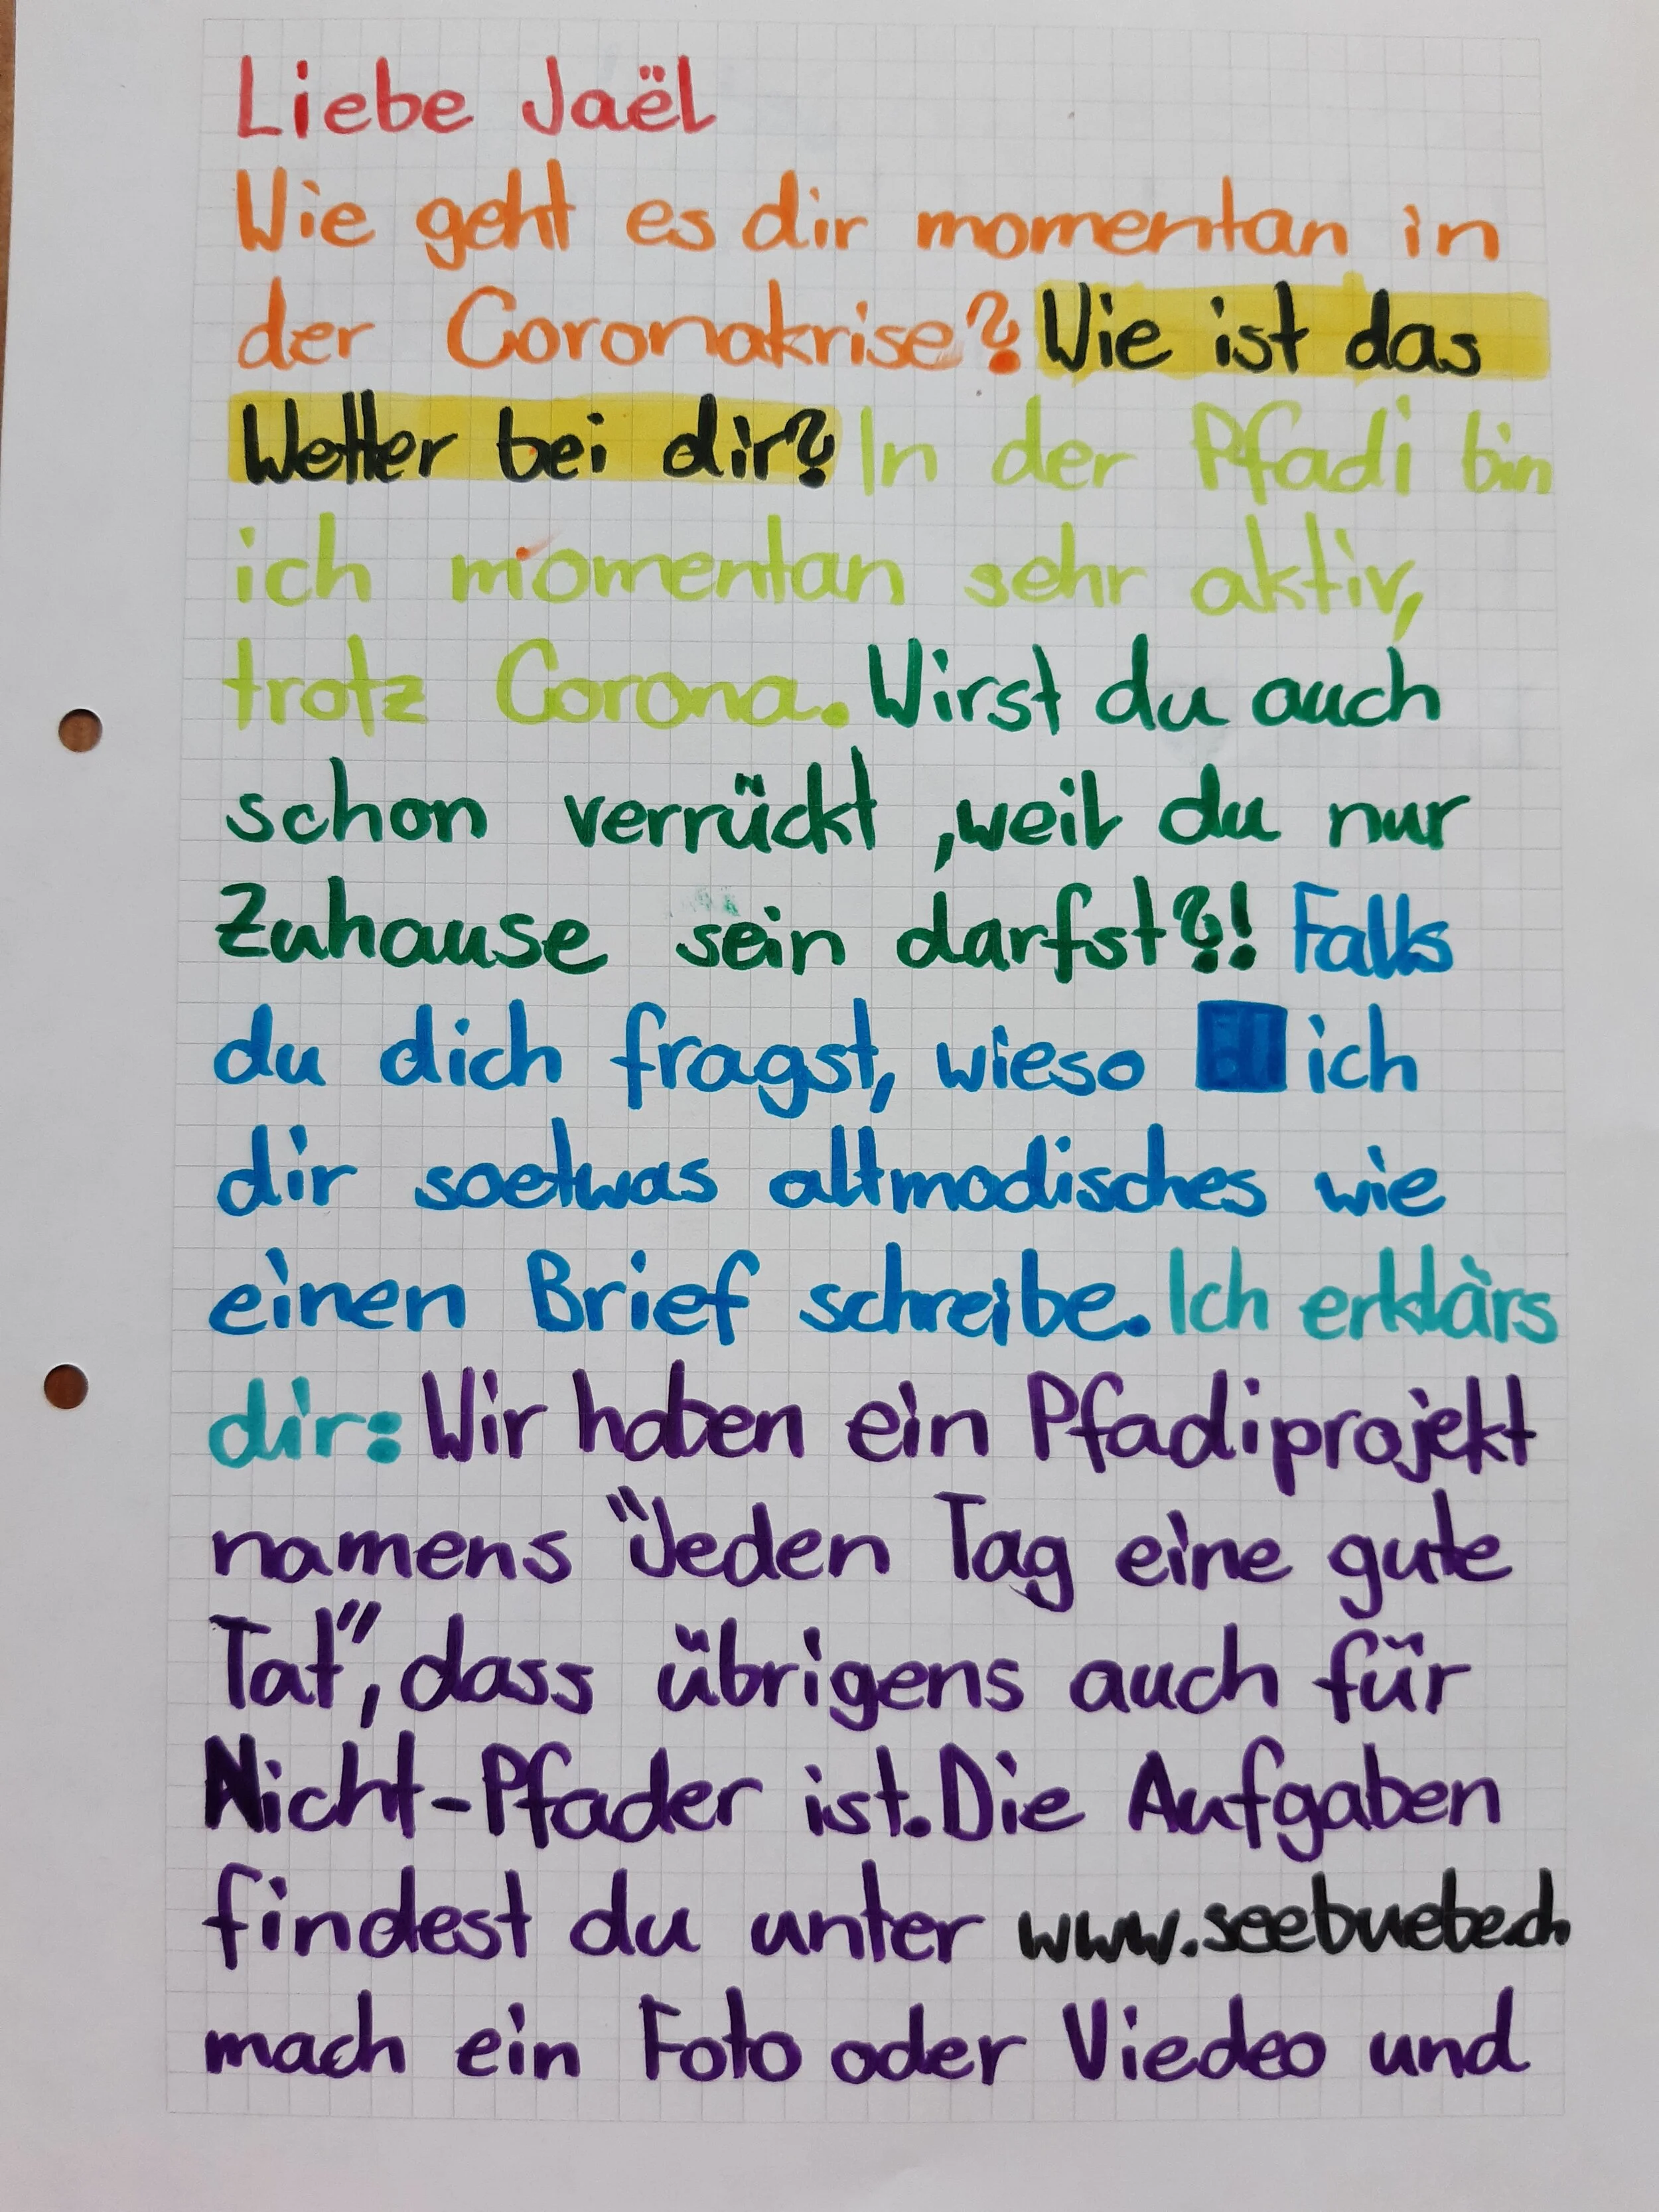 Liebe Jaël
Wie geht es dir momentan in
der Coronakrise? Wie ist das
Wetter bei dir? In der Pfadi bin
ich momentan sehr aktiv,
trotz Corona. Wirst du auch
schon verrückt ,weil du nur
Zuhause sein darfst?! Falls
du dich fragst, wieso ich
dir soetwas altmodisches wie
einen Brief schreibe. Ich erklärs
dir: Wir haben ein Pfadiprojekt
namens "Jeden Tag eine gute
Tat", dass übrigens auch für
Nicht-Pfader ist. Die Aufgaben
findest du unter www.seebuebe.ch
mach ein Foto oder Viedeo und